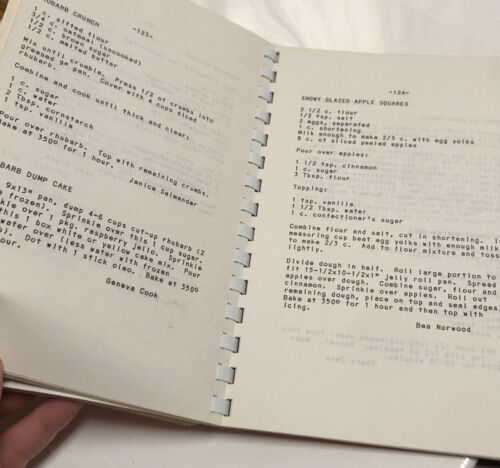 RHUBARB CRUNCH
-123-
1 c. sifted flour
3/4 c. oatmeal (uncooked)
1/2 c. brown sugar
1/2 c. melted butter
Mix until crumble. Press 1/2 of crumbs into
greased 9" pan. Cover with 4 cups diced
rhubarb.
Combine and cook until thick and clear:
1 c. sugar
1 c. water
2 Tbsp. cornstarch
1 tsp. vanilla
Pour over rhubarb. Top with remaining crumbs.
Bake at 350º for 1 hour.
Janice Salmander
BARB DUMP CAKE
9x13" pan, dump 4-6 cups cut-up rhubarb (2
frozen). Sprinkle over this 1 cup sugar.
nkle over 1 pkg. raspberry jello. Sprinkle
this 1 box white or yellow cake mix. Pour
water over (less water with frozen
). Dot with 1 stick oleo. Bake at 350º
our.
Geneva Cook
-124-
SNOWY GLAZED APPLE SQUARES
2 1/2 c. flour
1/2 tsp. salt
2 eggs, separated
1 c. shortening
Milk enough to make 2/3 c. with egg yolks
8 c. of sliced peeled apples
Pour over apples:
1 1/2 tsp. cinnamon
1 c. sugar
3 Tbsp. flour
Topping:
1 tsp. vanilla
1 1/2 Tbsp. water
1 c. confectioner's sugar
Combine flour and salt, cut in shortening. I
measuring cup beat egg yolks with enough milk
to make 2/3 c. Add to flour mixture and toss
lightly.
Divide dough in half. Roll large portion to
fit 15-1/2x10-1/2x1" jelly roll pan. Spread
apples over dough. Combine sugar, flour and
cinnamon. Sprinkle over apples. Roll out
remaining dough, place on top and seal edges.
Bake at 350º for 1 hour and then top with
icing.
Bea Norwood